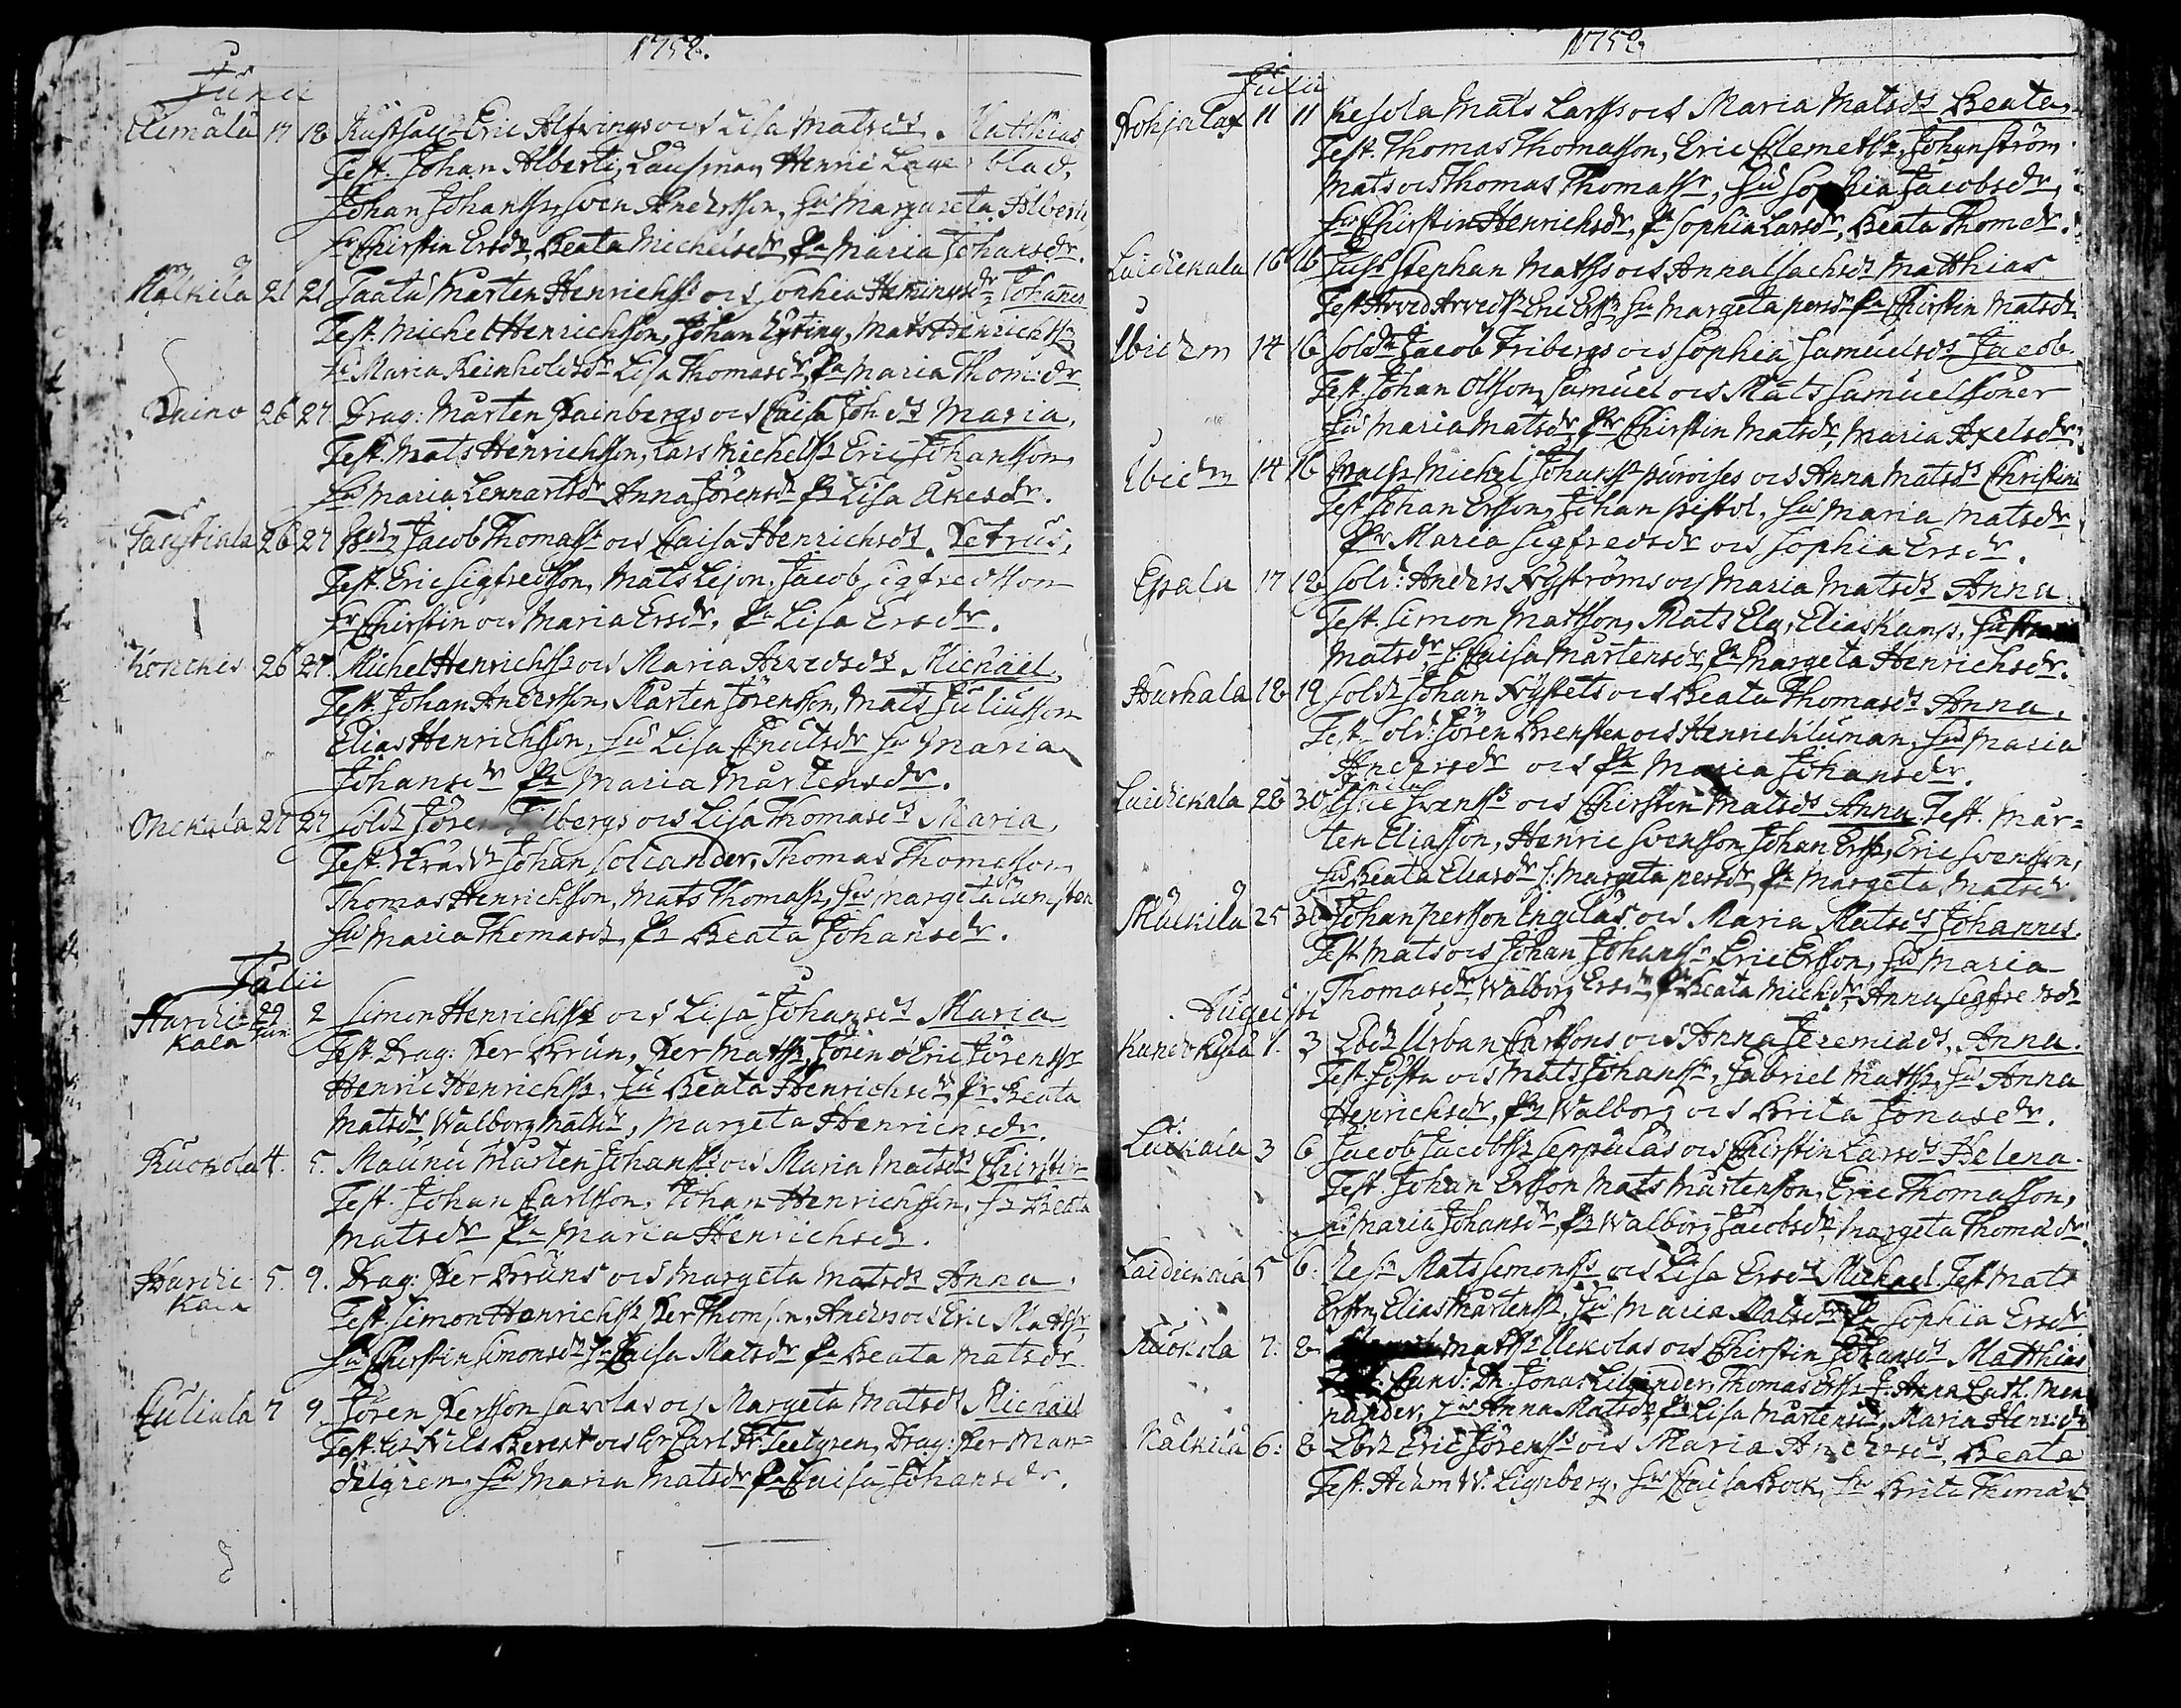 1752.
Junii
17 18 Eric Alfrings ocs Lisa Matsdr Matthias
Test. Johan Alberti, Länsman Henric Lagerblad,
Johan Johansson, Sven Andersson, hu Margareta Alberti,
hu Chirstin Ersdr, Beata Michelsdr, Pa Maria Johansdr.
Mälkilä 21 21 Mårten Henrichss ocs Sophia Hemingsdr Johannes
Test. Michel Henrichsson, Johan, Mats Henrichss
hu Maria Reinholdsdr Lisa Thomasdr, Pa Maria Thomdr
Daino 26 27 Drag: Mårten Dainbergs ocs Caisa Joh.dr Maria.
Test. Mats Henrichsson, Lars Michelss Eric Johansson
hu Maria Lennartsdr Anna Jörensdr Pa Lisa Åkesdr.
26 27 Jacob Thomass ocs Caisa Henrichsdr Petrus.
Test. Eric Sigfredsson, Mats Lejon, Jacob Sigfredsson
hu Chirstin ocs Maria Ersdr, Pa Lisa Ersdr.
26 27. Michel Henrichss ocs Maria Arvedsdr Michäel.
Test. Johan Andersson, Mårten Jörensson, Mats Juliusson
Elias Henrichsson, hu Lisa Cnutsdr hu Maria
Johansdr Pa Maria Mårtensdr.
Onckala 27 27 Soldt Jören bergs ocs Lisa Thomasdr Maria.
Test. Johan Solcander, Thomas Thomasson
Thomas Henrichsson, Mats Thomass, hu Margeta
hu Maria Thomasdr, Pa Beata Johansdr.
Julii
Hurdickala 29 Jun 2 Simon Henrichss ocs Lisa Johansdr Maria
Test. Drag: Per Brun, Per Matss, Jören o Eric Jörenss
Henric Henrichss, hu Beata Henrichsdr, Pr Beata
Matsdr, Walborg Matsdr, Margeta Henrichsdr.
Kuokola 4. 5. Maunu Mårten Johanss ocs Maria Matsdr Chirstin
Test. Johan Carlsson, Johan Henrichsson, hu Beata
Matsdr Pa Maria Henrichsdr.
Hurdickala 5. 9. Drag: Per Bruns ocs Margeta Matsdr Anna.
Test. Simon Henrichss Per Thomson, Anders ocs Eric Matssr
hu Chirstin Simonsdr hu Caisa Matsdr Pa Beata Matsdr
7 9. Jören Persson Savolas ocs Margeta Matsdr Michäel
Test. Nils Berent ocs Carl Fr. Teetgren, Drag: Per Man=
delgren, hu Maria Matsdr Pa Caisa Johansdr.
1752.
Julii
11 11 Kesola Mats Larss ocs Maria Matsdr Beata.
Test. Thomas Thomasson, Eric Clemetss, Johan ström.
Mats ocs Thomas Thomassr, hu Sophia Jacobsdr,
hu Chirstin Henrichsdr, Pa Sophia Larsdr, Beata Thomdr.
Laidickala 16 16 Stephan Matss ocs Anna Isachsdr Matthias
Test. Arved Arvedss Eric Erss hu Margeta Persdr Pa Chirstin Matsdr.
Ibidem 14 16 Soldt Jacob Fribergs ocs Sophia Samuelsdr Jacob.
Test. Johan Olsson, Samuel ocs Mats Samuelssöner
hu Maria Matsdr Pr Chirstin Matsdr, Maria Axelsdr.
Ibidem 14 16 Michel Johanss ocs Anna Matsdr Christina
Test. Johan Ersson, Johan Pistol, hu Maria Matsdr
Pr Maria Sigfredsdr ocs Sophia Ersdr.
Epala 17 18 Sold: Anders Nyströms ocs Maria Matsdr Anna
Test. Simon Matsson, Mats Elg, Elias Kamp,
Matsdr, Caisa Mårtensdr, Pa Margeta Henrichsdr.
Hurkala 18 19 Soldt Johan ocs Beata Thomasdr Anna.
Test. Sold: Jören ocs Henrich, hu Maria
Andersdr ocs Pa Maria Johansdr.
Laidickala 28 30 Svenss ocs Chirstin Matsdr Anna. Test. Mår=
ten Eliasson, Henric Svensson Johan Erss, Eric Svensson,
hu Beata Eliasdr h: Margeta Persdr, Pa Margeta Matsdr.
Mälkilä 25 30 Johan Persson Engilas ocs Maria Matsdr Johannes.
Test. Mats ocs Johan Johanssr, Eric Ersson, hu Maria
Thomasdr, Walborg Ersdr, Pr Beata Michdr, Anna Sigfredsdr
Augusti
1. 3 Urban Carlsons ocs Anna Jeremiædr, Anna.
Test. Gösta ocs Mats Johanssr, Gabriel Matss, hu Anna
Henrichsdr, Pa Walborg ocs Brita Jonasdr.
3 6 Jacob Jacobss Seppäläs ocs Chirstin Larsdr Helena.
Test. Johan Ersson Mats Mårtenson, Eric Thomasson,
hu Maria Johansdr, Pr Walborg Jacobsdr Margeta Thomdr.
5 6. Mats Simonss ocs Lisa Ersdr Michael. Test. Mats
Erssn, Elias Mårtenss, hu Maria Matsdr Pa Sophia Ersdr
Kuokola 7. 8 Matss Uckolas ocs Chirstin Johansdr Matthias
Cand: Jonas Lilander, Thomas Erss J. Anna Cath. Men
nander, hu Anna Matsdr, Pr Lisa Mårtensdr, Maria Henricdr
Mälkilä 6: 8 Eric Jörenss ocs Maria Andersdr, Beata
Test. Adam W. Lignberg, hu Caisa Bock, hu Brita Thomasdr